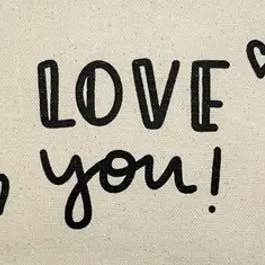 LOVE
you!